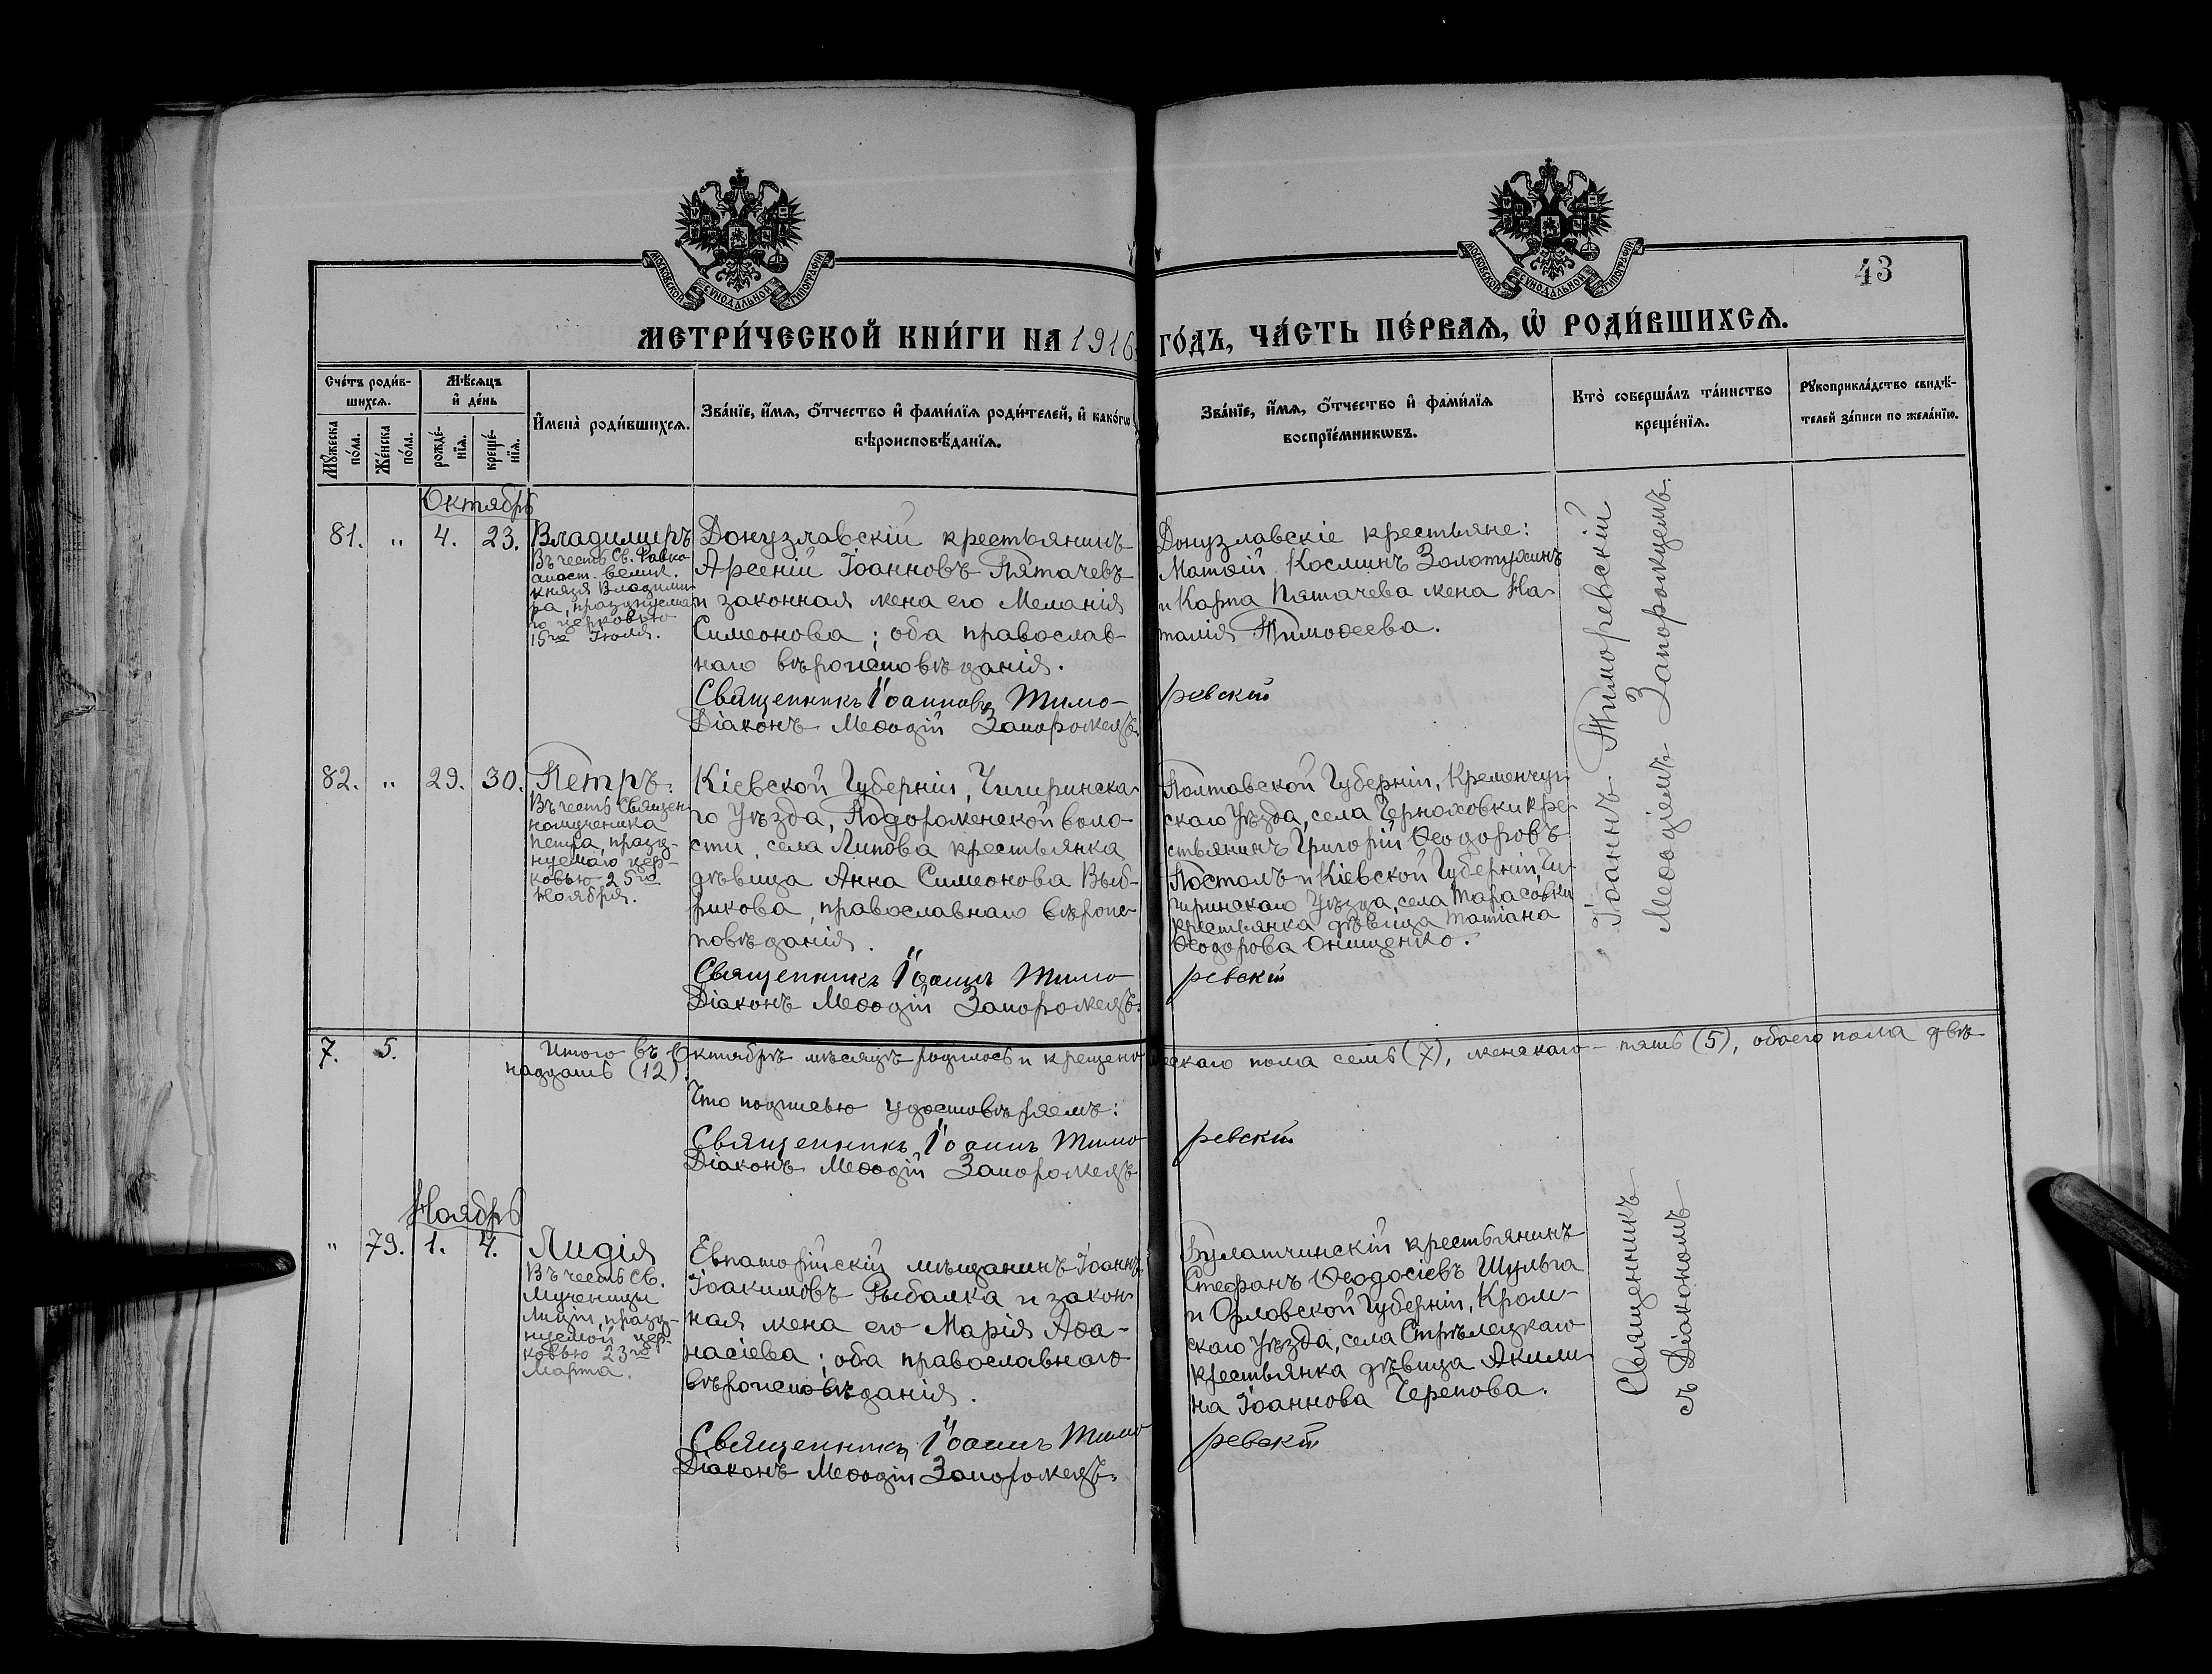 МОСКОВСКОЙ СѴНОДАЛЬНОЙ ТИПОГРАФІИ
МОСКОВСКОЙ СѴНОДАЛЬНОЙ ТИПОГРАФІИ
43
МЕТРИ́ЧЕСКОЙ КНИ́ГИ НА 1916 ГО́ДЪ, ЧА́СТЬ ПЕ́РВАѦ, Ѡ҆ РОДИ́ВШИХСѦ.
Сче́тъ роди́в-
шихсѧ.
Мѣ́сѧцъ
и҆ де́нь
Мꙋ́жеска
по́ла.
Же́нска
по́ла.
рожде́-
нїѧ.
креще́-
нїѧ.
И҆мена̀ роди́вшихсѧ.
Зва́нїе, и҆́мѧ, ѻ҆́тчество и҆ фами́лїѧ роди́телей, и҆ како́гѡ
вѣроисповѣ́данїѧ.
Зва́нїе, и҆́мѧ, ѻ҆́тчество и҆ фами́лїѧ
воспрїе́мникѡвъ.
Кто̀ соверша́лъ та́инство
креще́нїѧ.
Рꙋкоприкла́дство свидѣ́-
телей за́писи по жела́нїю.
Октябрь
81. " 4. 23. Владимиръ
Въ честь Св. Равно
апост. велик.
князя Владими-
ра, празднуема-
го церковью
15го Іюля.
Донузлавскій крестьянинъ
Арсеній Іоанновъ Пятачевъ
и законная жена его Меланія
Симеонова; оба православ-
наго вѣроисповѣданія.
Священникъ Іоанновъ Тимо-
Діаконъ Меѳодій Запорожецъ.
Донузлавскіе крестьяне:
Матѳій Косминъ Золотухинъ
и Карпа Пятачева жена На-
талія Тимоѳеева.
ревскій
82. " 29. 30. Петръ.
Въ честь Священ-
номученика
Петра, празд-
нуемаго цер-
ковью 25го
Ноября.
Кіевской Губерніи, Чигиринска-
го Уѣзда, Подорожненской воло-
сти, села Липова крестьянка
дѣвица Анна Симеонова Выб-
рикова, православнаго вѣроис-
повѣданія.
Священникъ Іоаннъ Тимо
Діаконъ Меѳодій Запорожецъ.
Полтавской Губерніи, Кременчуг-
скаго Уѣзда, села Черняховки кре-
стьянинъ Григорій Ѳеодоровъ
Постолъ и Кіевской Губерніи, Чи-
гиринскаго Уѣзда, села Тарасовки
крестьянка дѣвица Татіана
Ѳеодорова Онищенко.
ревскій
Іоаннъ Тиморевскій
Меѳодіемъ Запорожцемъ.
7. 5. Итого въ Октябрѣ мѣсяцѣ родилось и крещено ескаго пола семь (7), женскаго – пять (5), обоего пола двѣ-
надцать (12).
Что подписью удостовѣряемъ:
Священникъ Іоаннъ Тимо
Діаконъ Меѳодій Запорожецъ
ревскій
Ноябрь
" 79. 1. 4. Лидія
Въ честь Св.
Мученицы
Лидіи, празд-
нуемой цер-
ковью 23го
Марта.
Евпаторійскій мѣщанинъ Іоаннъ
Іоакимовъ Рыбалка и закон-
ная жена его Марія Аѳа-
насіева; оба православнаго
вѣроисповѣданія.
Священникъ Іоаннъ Тимо
Діаконъ Меѳодій Запорожецъ.
Булатчинскій крестьянинъ
Стефанъ Ѳеодосіевъ Шульга
и Орловской Губерніи, Кром-
скаго Уѣзда, села Стрѣлецкаго
крестьянка дѣвица Акили-
на Іоаннова Черепова.
ревскій
Священникъ
съ Діакономъ